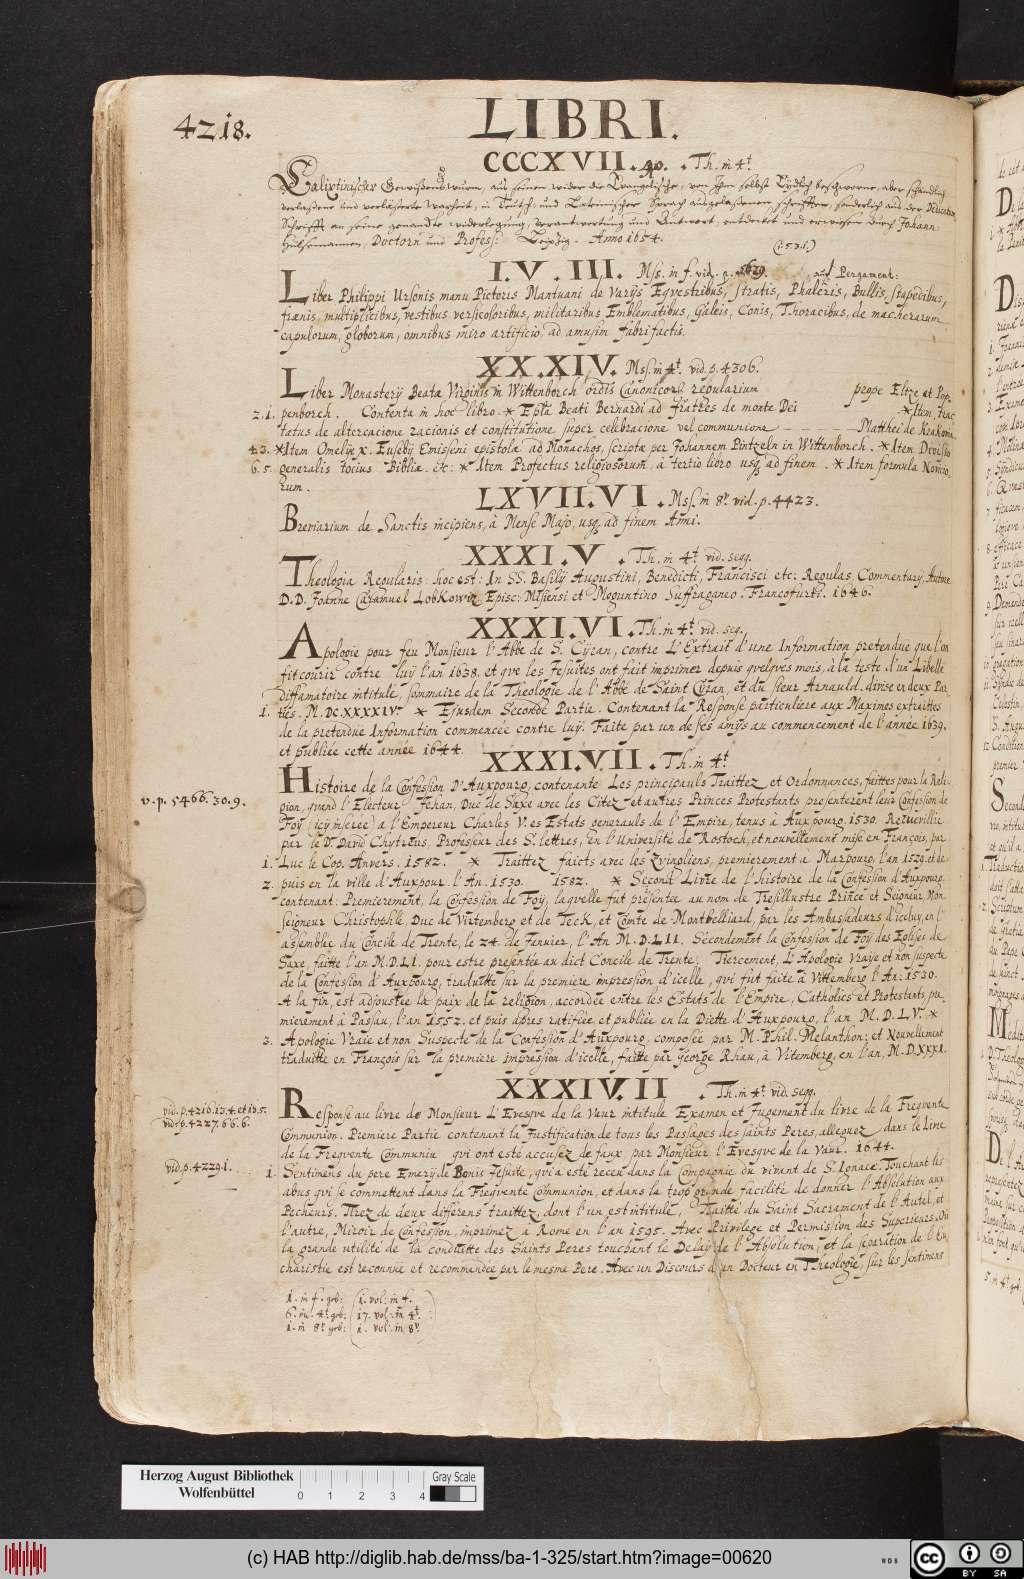 4218.
LIBRI.
CCCXVII. 40. Th. in 4t
Calixtinischer Gewissenswurm, aus seinen wider die Evangelische, von Ihm selbst Eydlich beschworne, aber schändlich
verlassene und verlästerte Warheit, in Teutsch: und Lateinischer Sprach ausgelassenen schrifften, sonderlich aus der Dedication
Schrifft an seine genandte widerlegung, verantwortung und Antwort, entdecket und erwiesen durch Johann:
Hülsemannen, Doctorn und Profess: Leipzig. Anno 1654.
(i.53.i.)
I.V.III. Mss. in f. vid. p. 1629. auf Pergament:
Liber Philippi Ursonis manu Pictoris Mantuani de Varijs Eqvestribus, stratis, Phaleris, Bullis, stapedibus,
frænis, multiplicibus, vestibus versicoloribus, militaribus Emblematibus, Galeis, Conis, Thoracibus, de macherarum
capulorum, globorum, omnibus miro artificio, ad amusim fabrifactis.
XX.XIV. Mss. in 4t. vid. p. 4306.
Liber Monastery Beatæ Virginis in Wittenborch ordis Canonicorū regularium prope Eltze et Pop
z.i. penborch. Contenta in hoc libro * Epla Beati Bernardi ad fratres de monte Dei * Item, trac
tatus de altercacione racionis et constitutione super celebracione vel communione Matthei de krakovia
43. * Item Omelijæ x. Eusebij Emiseni epistolæ ad Monachos, scripta per Johannem Pintzeln in Wittenborch. * Item Divisio
6.5. generalis tocius Bibliæ. &c: * Item Profectus religiosorum, à tertio libro usq, ad finem. * Item formula Novicio,
rum.
LXVII.VI. Mss. in 8t. vid. p. 4423.
Breviarium de Sanctis incipiens, à Mense Majo, usq, ad finem Anni.
XXXI.V. Th. in 4t vid. seqq.
Theologia Regularis: hoc est: In SS. Basilij Augustini, Benedicti, Francisci etc: Regulas, Commentarij, Autore
D.D. Joanne Caramuel Lobkowitz Episc: Misiensi et Moguntino Suffraganeo. Francofurti. 1646.
XXXI.VI. Th. in 4t. vid. seq.
Apologie pour feu Monsieur l'Abbe de S. Cyran, contre L'Extrait d'une Information pretendue que l'on
fit courir contre luy l'an 1638. et que les Jesuites ont fait imprimer depuis quelques mois, à la teste d'un Libelle
Diffamatoire intitule, sommaire de la Theologie de l'Abbe de Saint Cyran, et du sieur Arnauld. divise en deux Par
i. ties. M.DC.XXXXIV. * Ejusdem Seconde Partie. Contenant la Response particuliere aux Maximes extraittes
de la pretendue Information commencée contre luy. Faite par un de ses amys au commencement de l'année 1639.
et publiée cette année 1644.
XXXI.VII. Th. in 4t
Histoire de la Confession D'Auxpourg, contenante Les principauls Traittez et Ordonnances, faittes pour la Reli-
v. p. 5466. 30. 9. gion, quand l'Electeur Jehan, Duc de Saxe avec les Citez et autres Princes Protestants presenterent leur Confession de
Foy (icy inseree) a l'Empereur Charles V. es Estats generauls de l'Empire, tenus à Auxpourg, 1530. Recueillie
par le D. David Chytreus. Professeur des S. lettres, en l'Université de Rostoch, et nouvellement mise en François, par
i. Luc le Cop. Anvers. 1582. * Traittez faicts avec les Zvingliens, premierement a Marpourg, l'an 1529. et de
z. puis en la ville d'Auxpour l'An. 1530. 1582. * Second Livre de l'histoire de la Confession d'Auxpourg.
contenant. Premierement, la Confession de Foy, laqvelle fut présentee au nom de Tresillustre Prince et Seigneur, Mon
seigneur Christophle, Duc de Virtemberg et de Teck, et Comte de Montbelliard, par les Ambasadeurs d'iceluy, en l'
assemblee du Concile de Trente, le 24. de Janvier, l'An M.D.LII. Secondement la Confession de Foy des Eglises de
Saxe, faitte l'an M.D.LI. pour estre presentée au dict Concile de Trente. Tiercement, L'Apologie Vraye et non suspecte
de la Confession d'Auxpourg, traduitte sur la premiere impression d'icelle, qvi fut faite à Vittemberg l'An. 1530.
A la fin, est adjoustée la paix de la religion, accordée entre les Estats de l'Empire, Catholics et Protestants pre-
mierement à Passau, l'an 1552. et puis apres ratifiée et publiée en la Diette d'Auxpourg, l'an M.D.LV. *
3. Apologie Vraie et non Suspecte de la Confession d'Auxpourg, composée par M. Phil. Melanthon: et Nouvellement
traduitte en François sur la premiere impression d'icelle, faitte par George Rhau, à Vitemberg, en l'an, M.D.XXXI.
XXXIV.II. Th. in 4t vid. seqq.
vid. p. 4216. i3. 4. et i3. 5. Response au livre de Monsieur L'Evesque de la Vaur intitule Examen et Jugement du livre de la Freqvente
vid. p. 4227. 6 6. 6. Communion. Premiere Partie contenant la Justification de tous les Passages des saints Peres, alleguez dans le livre
de la Freqvente Communiu qvi ont este accusez de faux par Monsieur l'Evesque de la Vaur. 1644.
vid. p. 4229. i. i. Sentimens du pere Emery de Bonis Jesuite, qvi a este receu dans la Compagnie du vivant de S. Ignace. Touchant les
abus qvi se commettent dans la Freqvente Communion, et dans la trop grande facilité de donner l'Absolution aux
Pecheurs. Tirez de deux differens traittez, dont l'un est intitulé, Traitté du Saint Sacrament de l'Autel, et
l'autre, Miroir de Confession, imprimez a Rome en l'an 1595. Avec Privilege et Permission des Superieurs. Où
la grande utilité de la conduitte des Saints Peres touchant le Delay de l'Absolution, et la separation de l'Eu
charistie est reconnue et recommendée par le mesme Pere. Avec un Discours d'un Docteur en Theologie, sur les sentimens
i. in f. geb: (i. vol: in f.
6. in. 4t. geb: (17. vol: in 4t.
i. in 8t geb: (i. vol: in 8t
Herzog August Bibliothek
Wolfenbüttel
0 1 2 3 4
Gray Scale
(c) HAB http://diglib.hab.de/mss/ba-1-325/start.htm?image=00620
WDB
cc BY SA